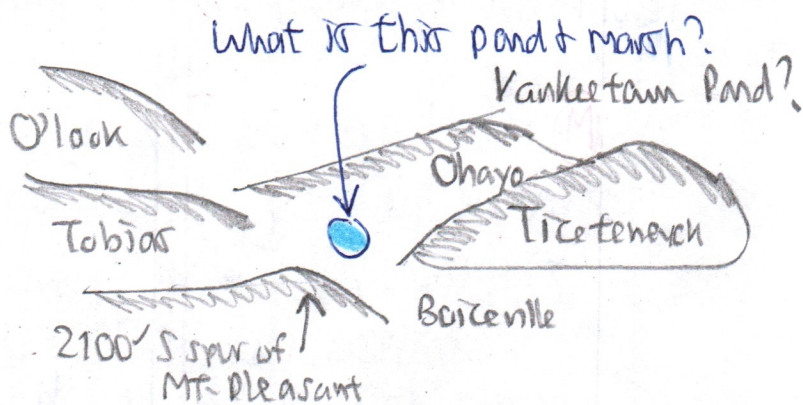 What is this pond & marsh?
Yankeetown Pond?
O'look
Ohayo
Tobias
Ticeteneyck
Boiceville
2100' S spur of
Mt. Pleasant